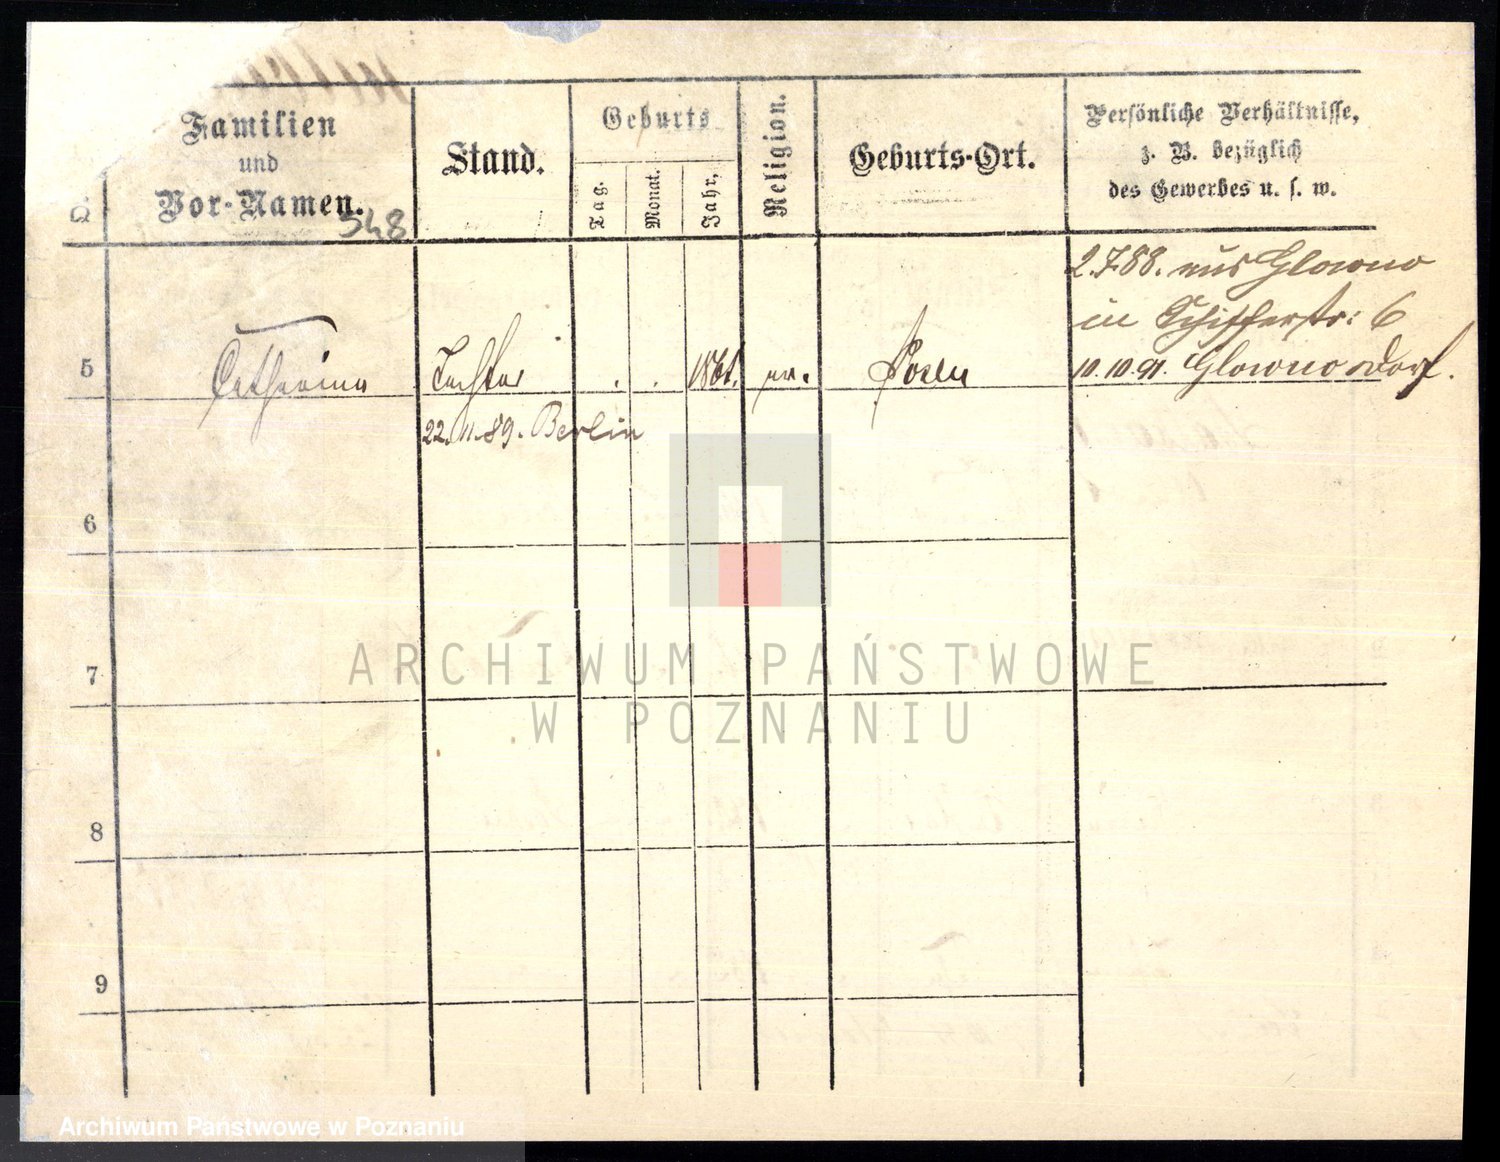 Familien
und
Vor-Namen.
Stand.
Geburts
Tag.
Monat.
Jahr,
Religion.
Geburts-Ort.
Persönliche Verhältnisse,
z. B. bezüglich
des Gewerbes u. s. w.
548
2.7.88. aus Glowno
in Schifferstr: 6
5 Catharina Tochter . . 1861. ev. Posen 10.10.91. Glowno Dorf.
22.11.89. Berlin
6
7
8
9
ARCHIWUM PAŃSTWOWE
W POZNANIU
Archiwum Państwowe w Poznaniu